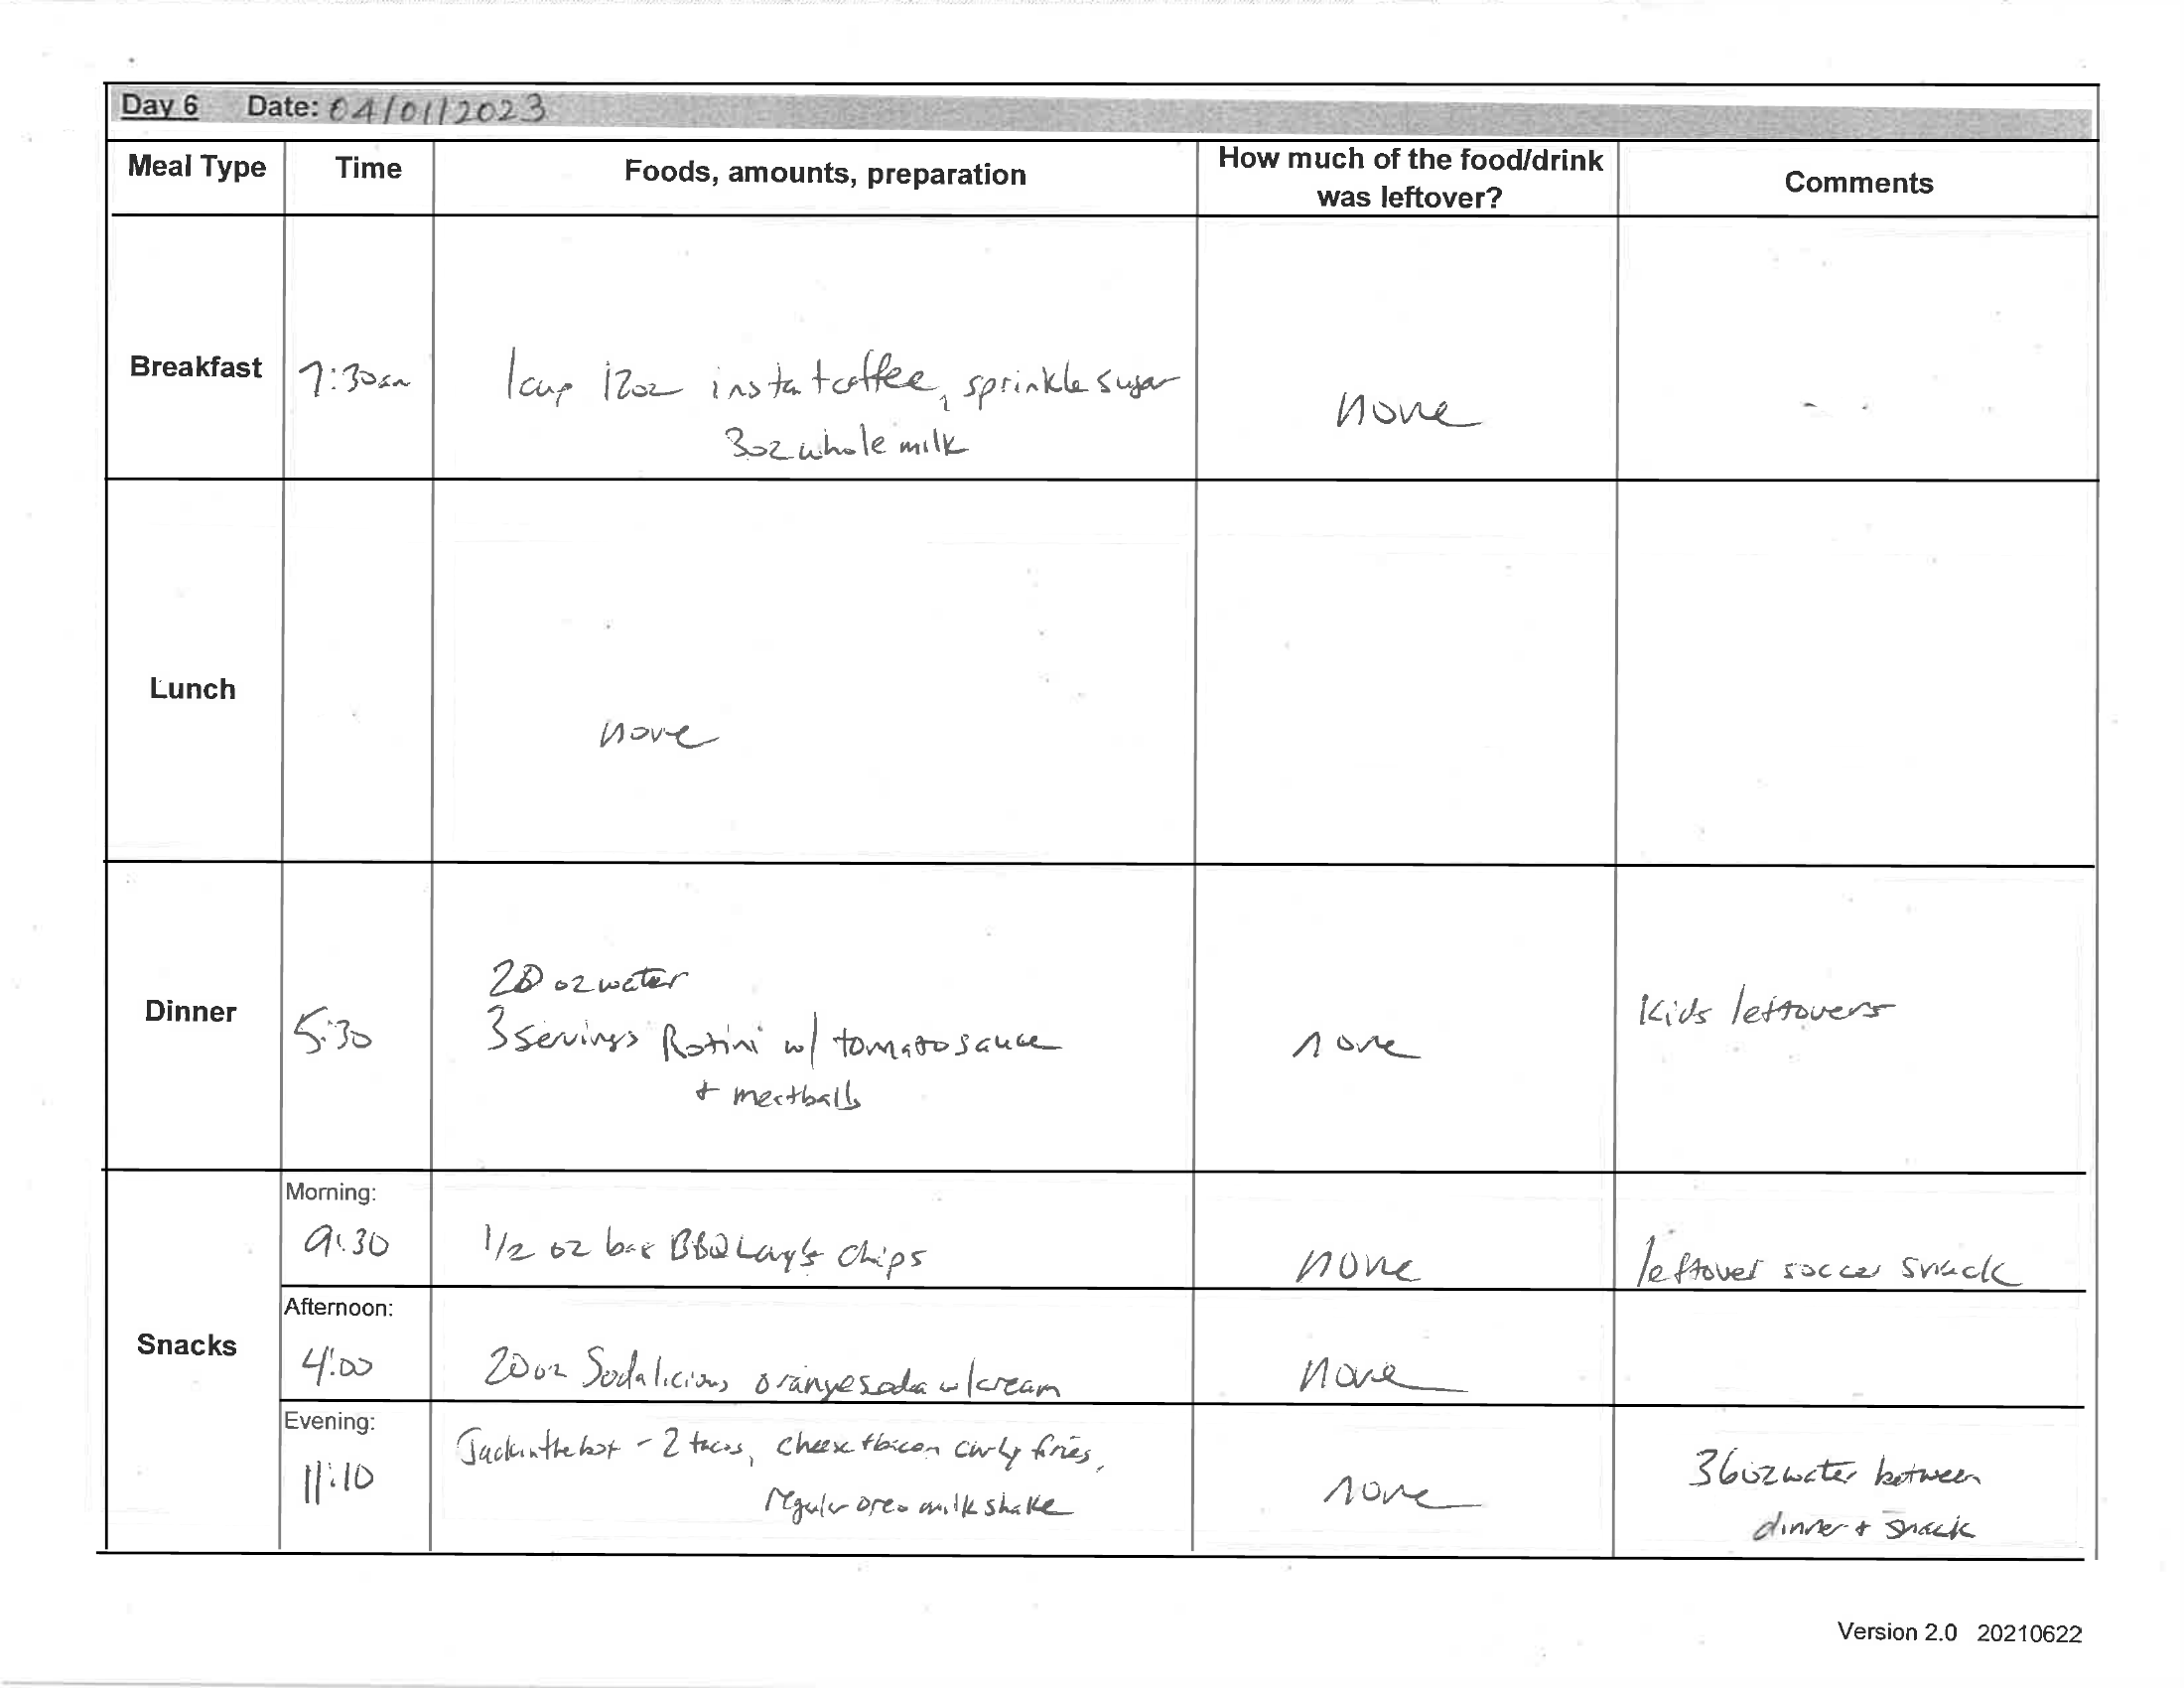 Day 6 Date: 04/01/2023
Meal Type Time Foods, amounts, preparation How much of the food/drink was leftover? Comments
Breakfast 7:30am 1 cup 12oz instant coffee, sprinkle sugar
3oz whole milk
none
Lunch
none
Dinner 5:30
20 oz water
3 servings Rotini w/ tomato sauce
+ meatballs
none
Kids leftovers
Snacks
Morning:
9:30 1/2 oz bag BBQ Lay's chips none leftover soccer snack
Afternoon:
4:00 20oz Sodalicious orange soda w/cream none
Evening:
11:10 Jack in the box - 2 tacos, cheese + bacon curly fries,
regular oreo milkshake
none
36oz water between
dinner + snack
Version 2.0 20210622